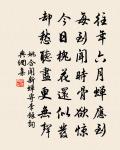 往年六月蟬應到
每到聞時骨欲驚
今日槐花還似發
卻愁聽盡更無聲
姚合聞新蟬寄李餘詞
典網集